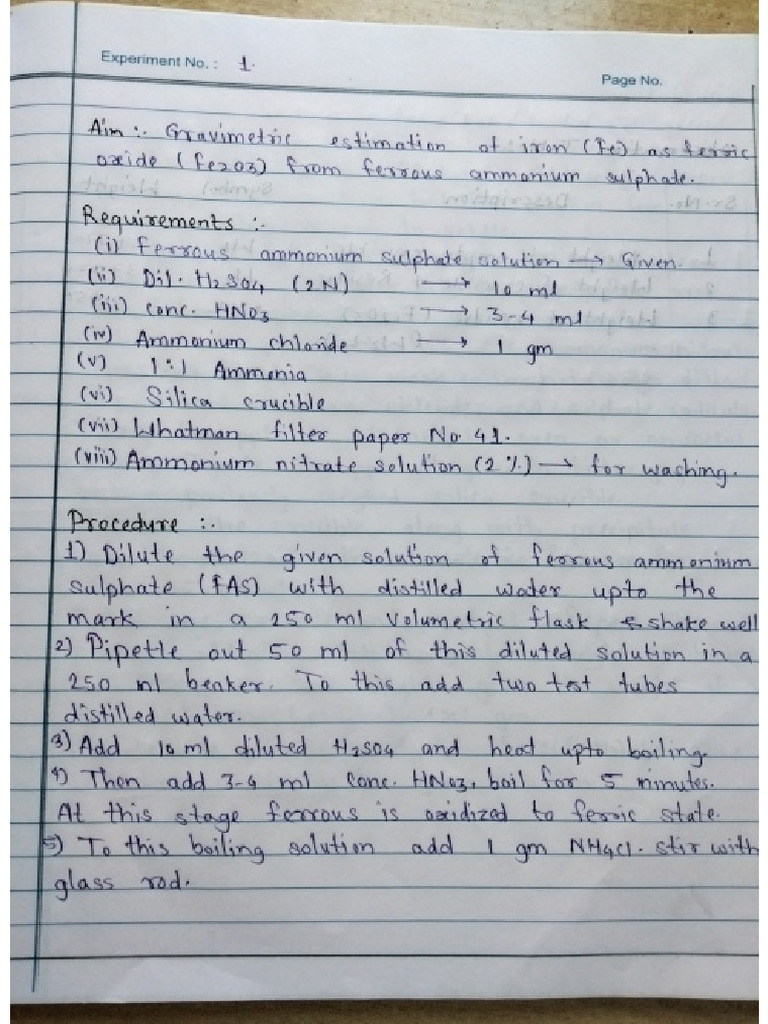 Experiment No. : 1.
Page No.
Aim :- Gravimetric estimation of iron (Fe) as ferric
oxide (Fe2O3) from ferrous ammonium sulphate.
Requirements :-
(i) Ferrous ammonium sulphate solution → Given.
(ii) Dil. H2SO4 (2N) → 10 ml
(iii) conc. HNO3 → 3-4 ml
(iv) Ammonium chloride → 1 gm
(v) 1:1 Ammonia
(vi) Silica crucible
(vii) Whatman filter paper No. 41.
(viii) Ammonium nitrate solution (2%) → for washing.
Procedure :-
1) Dilute the given solution of ferrous ammonium
sulphate (FAS) with distilled water upto the
mark in a 250 ml volumetric flask & shake well
2) Pipette out 50 ml of this diluted solution in a
250 ml beaker. To this add two test tubes
distilled water.
3) Add 10 ml diluted H2SO4 and heat upto boiling.
4) Then add 3-4 ml conc. HNO3, boil for 5 minutes.
At this stage ferrous is oxidized to ferric state.
5) To this boiling solution add 1 gm NH4Cl. stir with
glass rod.